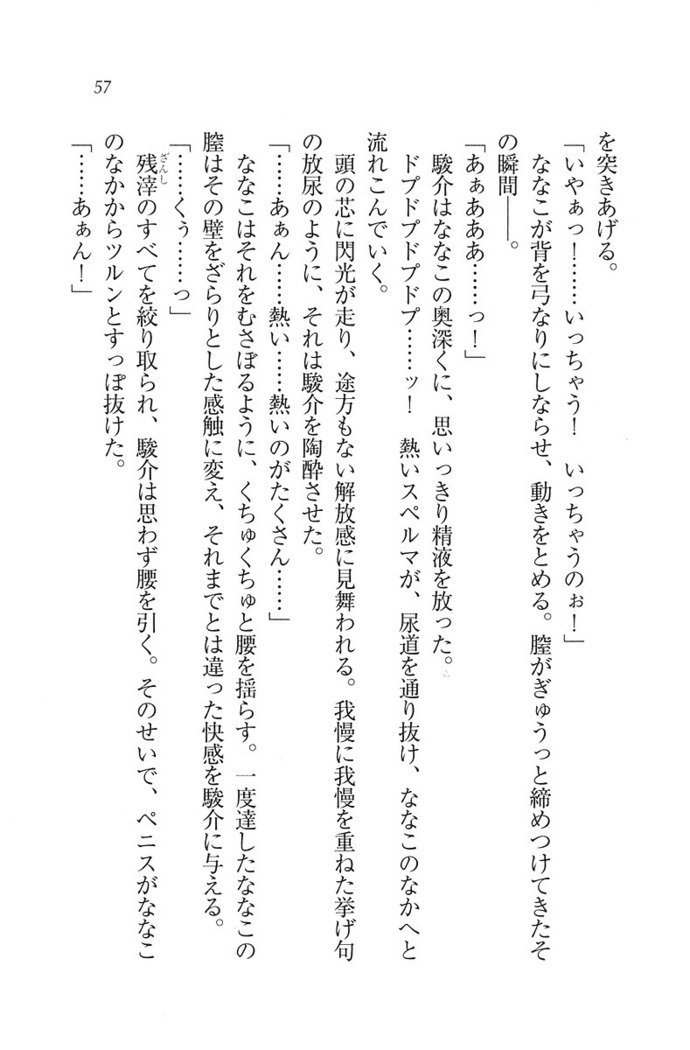 57
を突きあげる。
「いやぁっ！……いっちゃう！　いっちゃうのぉ！」
ななこが背を弓なりにしならせ、動きをとめる。膣がぎゅうっと締めつけてきたそ
の瞬間――。
「あぁあああ……っ！」
駿介はななこの奥深くに、思いっきり精液を放った。
ドプドプドプドプ……ッ！　熱いスペルマが、尿道を通り抜け、ななこのなかへと
流れこんでいく。
頭の芯に閃光が走り、途方もない解放感に見舞われる。我慢に我慢を重ねた挙げ句
の放尿のように、それは駿介を陶酔させた。
「……あぁん……熱い……熱いのがたくさん……」
ななこはそれをむさぼるように、くちゅくちゅと腰を揺らす。一度達したななこの
膣はその壁をざらりとした感触に変え、それまでとは違った快感を駿介に与える。
「……くぅ……っ」
残滓のすべてを絞り取られ、駿介は思わず腰を引く。そのせいで、ペニスがななこ
ざんし
のなかからツルンとすっぽ抜けた。
「……あぁん！」